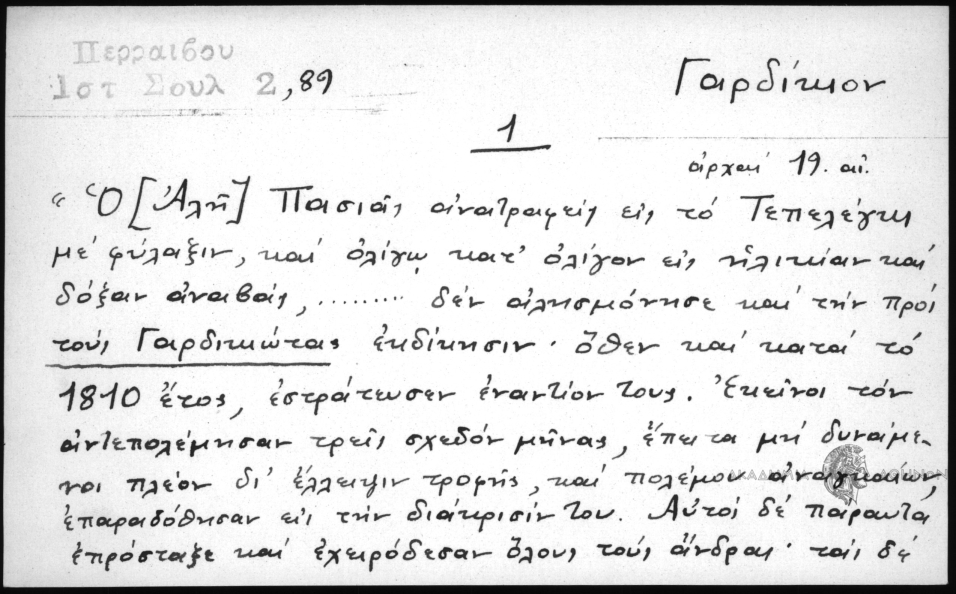 Περραιβου
Ιστ Σουλ 2,89
Γαρδίκιον
1
ἀρχαὶ 19. αἰ.
« Ὁ [Ἀλῆ] Πασιᾶς ἀνατραφεὶς εἰς τό Τεπελένι
μέ φύλαξιν, καί ὀλίγῳ κατ' ὀλίγον εἰς ἡλικίαν καί
δόξαν ἀναβάς, ......... δέν ἀλησμόνησε καί τήν πρός
τούς Γαρδικιώτας ἐκδίκησιν· ὅθεν καί κατά τό
1810 ἔτος, ἐστράτευσεν ἐναντίον τους. Ἐκεῖνοι τόν
ἀντεπολέμησαν τρεῖς σχεδόν μῆνας, ἔπειτα μή δυνάμε-
νοι πλέον δι' ἔλλειψιν τροφῆς, καί πολέμου ἀναγκαίων,
ΑΚΑΔΗΜΙΑ ΑΘΗΝΩΝ
ἐπαραδόθησαν εἰς τήν διάκρισίν του. Αὐτοί δέ παραυτά
ἐπρόσταξε καί ἐχειρόδεσαν ὅλους τούς ἄνδρας· τάς δέ